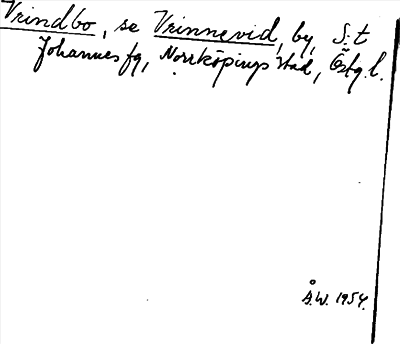 Vrindbo, se Vrinnevid, by, S:t
Johannes fg, Norrköpings stad, Östg. l.
Å.W. 1954.